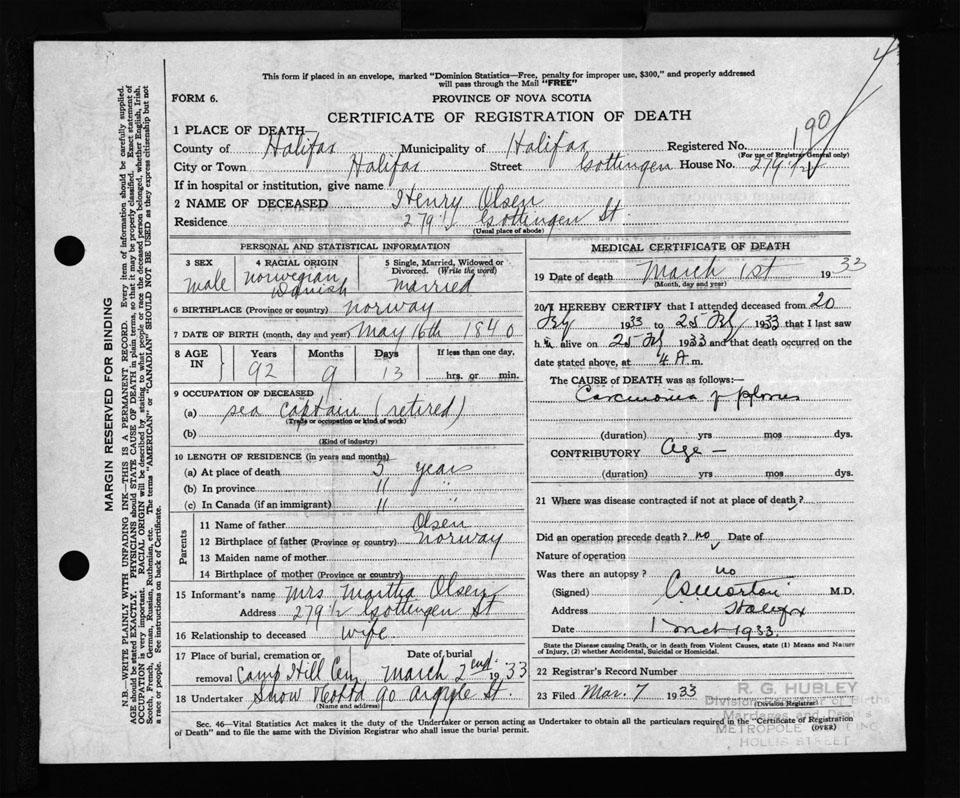 This form if placed in an envelope, marked "Dominion Statistics—Free, penalty for improper use, $300," and properly addressed
will pass through the Mail "FREE"
4
FORM 6.
PROVINCE OF NOVA SCOTIA
CERTIFICATE OF REGISTRATION OF DEATH
1 PLACE OF DEATH—
County of Halifax Municipality of Halifax Registered No. 190
(For use of Registrar General only)
City or Town Halifax Street Gottingen House No. 279 1/2
If in hospital or institution, give name
2 NAME OF DECEASED Henry Olsen
Residence 279 1/2 Gottingen St.
(Usual place of abode)
PERSONAL AND STATISTICAL INFORMATION
3 SEX 4 RACIAL ORIGIN 5 Single, Married, Widowed or Divorced. (Write the word)
male Norwegian Danish married
6 BIRTHPLACE (Province or country) Norway
7 DATE OF BIRTH (month, day and year) May 16th 1840
8 AGE IN Years Months Days If less than one day,
92 9 13 hrs. or min.
9 OCCUPATION OF DECEASED
(a) sea captain (retired)
(Trade or occupation or kind of work)
(b)
(Kind of industry)
10 LENGTH OF RESIDENCE (in years and months)
(a) At place of death 5 years
(b) In province 11 "
(c) In Canada (if an immigrant) 11 "
Parents
11 Name of father Olsen
12 Birthplace of father (Province or country) Norway
13 Maiden name of mother
14 Birthplace of mother (Province or country)
15 Informant's name Mrs Martha Olsen
Address 279 1/2 Gottingen St
16 Relationship to deceased wife
17 Place of burial, cremation or removal Camp Hill Cem Date of burial March 2nd 1933
18 Undertaker Snow & Co Ltd 90 Argyle St.
(Name and address)
MEDICAL CERTIFICATE OF DEATH
19 Date of death March 1st 1933
(Month, day and year)
20 I HEREBY CERTIFY that I attended deceased from 20
Feb 1933 to 25 Feb 1933 that I last saw
h im alive on 25 Feb 1933 and that death occurred on the
date stated above, at 4 A. m.
The CAUSE of DEATH was as follows:—
Carcinoma of
(duration) yrs mos dys.
CONTRIBUTORY Age —
(duration) yrs mos dys.
21 Where was disease contracted if not at place of death?
Did an operation precede death? no Date of
Nature of operation
Was there an autopsy? no
(Signed) M.D.
Address Halifax
Date 1 Mch 1933.
State the Disease causing Death, or in death from Violent Causes, state (1) Means and Nature of Injury, (2) whether Accidental, Suicidal or Homicidal.
22 Registrar's Record Number
23 Filed Mar. 7 1933
(Division Registrar)
R. G. HUBLEY
Division Registrar of Births
Marriages and Deaths
METROPOLE
HOLLIS STREET
Sec. 46—Vital Statistics Act makes it the duty of the Undertaker or person acting as Undertaker to obtain all the particulars required in the "Certificate of Registration
of Death" and to file the same with the Division Registrar who shall issue the burial permit. (OVER)
MARGIN RESERVED FOR BINDING
N.B.—WRITE PLAINLY WITH UNFADING INK—THIS IS A PERMANENT RECORD. Every item of information should be carefully supplied.
AGE should be stated EXACTLY. PHYSICIANS should STATE CAUSE OF DEATH in plain terms, so that it may be properly classified. Exact statement of
OCCUPATION is very important. RACIAL ORIGIN will be described by stating to what people or race the deceased person belonged, whether English, Irish,
Scotch, French, German, Russian, Ruthenian, etc. The terms "AMERICAN" or "CANADIAN" SHOULD NOT BE USED as they express citizenship but not
a race or people. See instructions on back of Certificate.